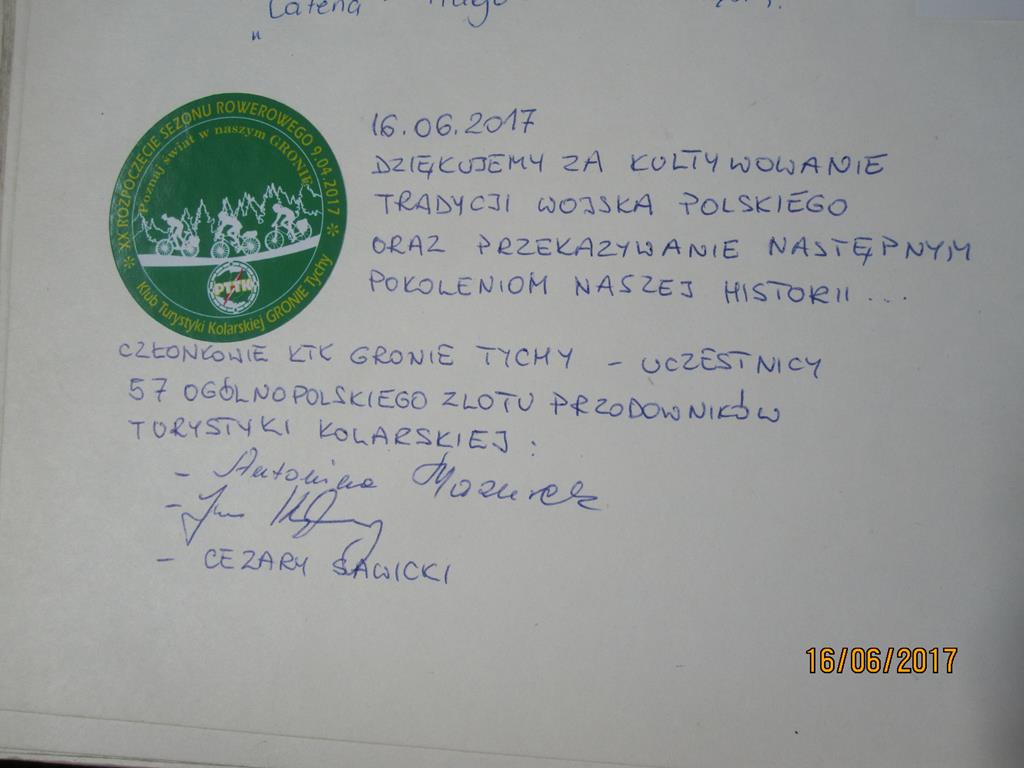 Latena
"
XX ROZPOCZĘCIE SEZONU ROWEROWEGO 9.04.2017
Poznaj świat w naszym GRONIE
PTTK
* Klub Turystyki Kolarskiej GRONIE Tychy *
16.06.2017
DZIĘKUJEMY ZA KULTYWOWANIE
TRADYCJI WOJSKA POLSKIEGO
ORAZ PRZEKAZYWANIE NASTĘPNYM
POKOLENIOM NASZEJ HISTORII ...
CZŁONKOWIE KTK GRONIE TYCHY - UCZESTNICY
57 OGÓLNOPOLSKIEGO ZLOTU PRZODOWNIKÓW
TURYSTYKI KOLARSKIEJ :
- Antonina Mazurek
-
- CEZARY SAWICKI
16/06/2017